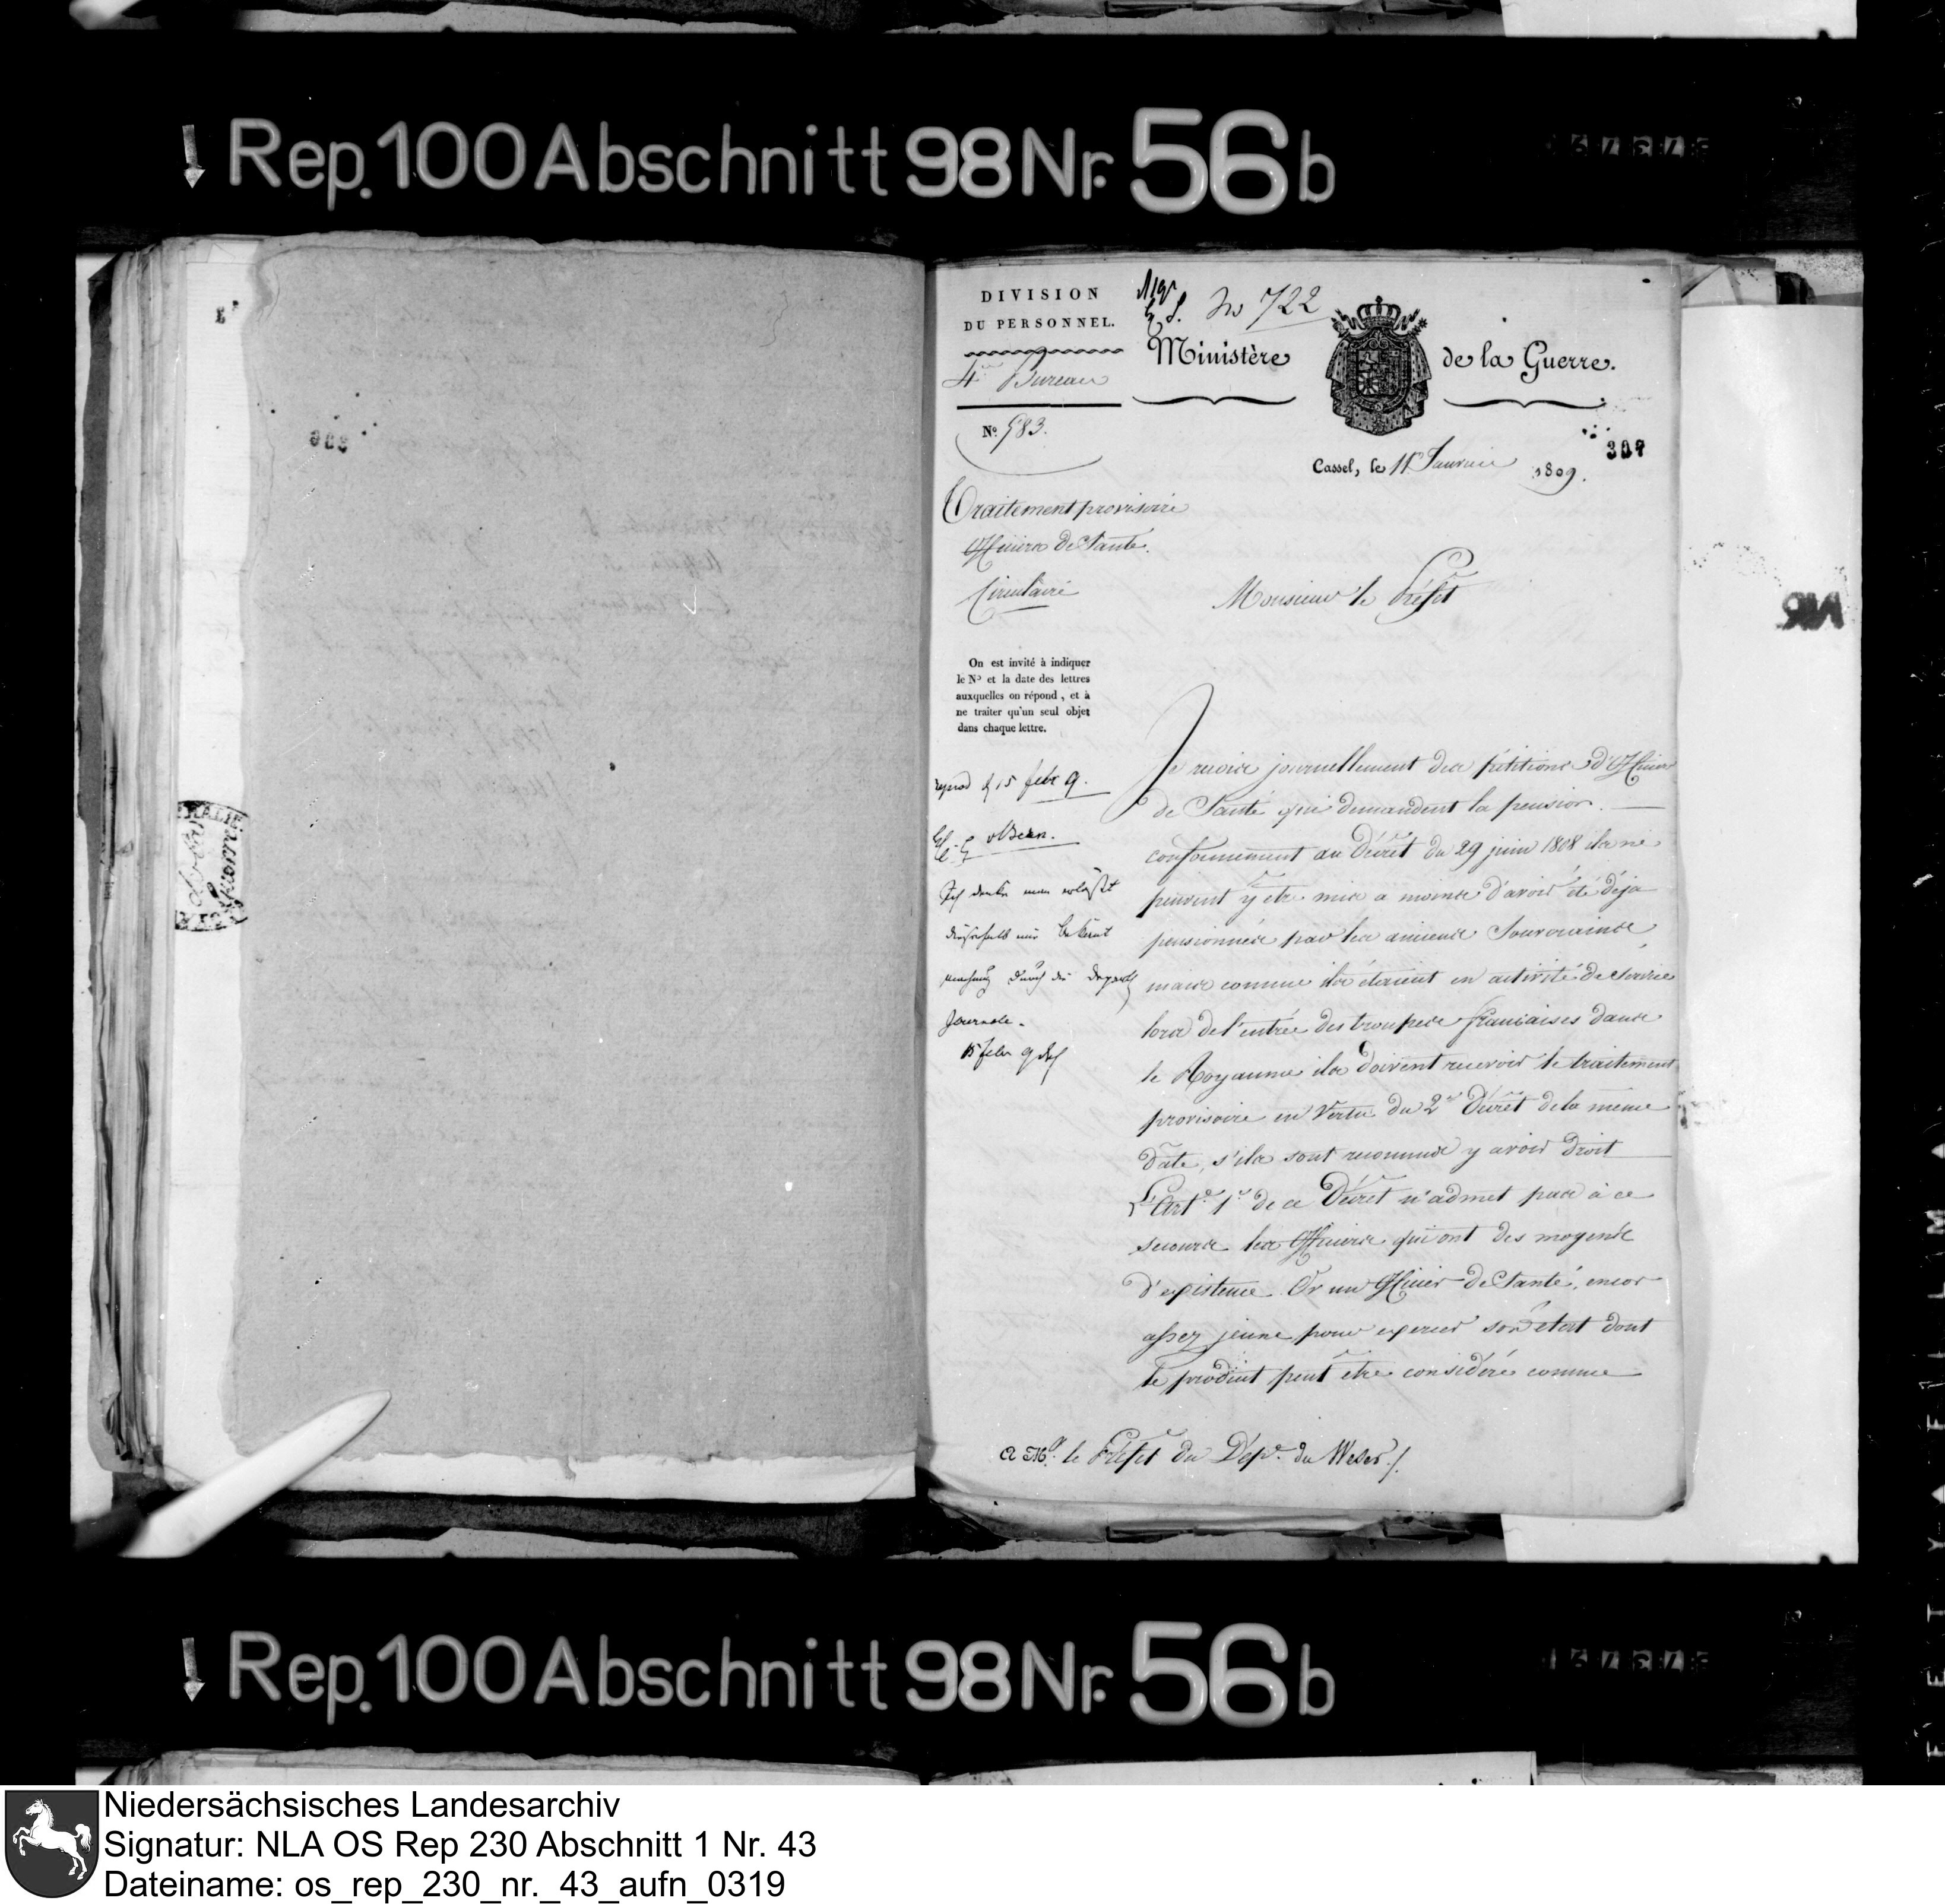 Rep. 100 Abschnitt 98 Nr. 56 b
DIVISION
DU PERSONNEL.
4me Bureau
No. 583.
No 722
Ministère de la Guerre.
307
Cassel, le 11 Janvier 1809.
Traitement provisoire
Officiers de Santé.
Circulaire
Monsieur le Préfet
On est invité à indiquer
le No et la date des lettres
auxquelles on répond, et à
ne traiter qu'un seul objet
dans chaque lettre.
Je reçois journellement des pétitions d'Officiers
de Santé qui demandent la pension.
conformement au Décret du 29 juin 1808 ils ne
peuvent y etre mis a moins d'avoir été déja
pensionnés par les anciens Souverains,
mais comme ils étaient en activité de Service
lors de l'entrée des troupes françaises dans
le Royaume ils doivent recevoir le traitement
provisoire en Vertu du 2e Décret de la même
date, s'ils sont reconnus y avoir droit
L'Art. 1er de ce Décret n'admet pas à ce
secours les Officiers qui ont des moyens
d'existence. Or un Officier de Santé, encor
assez jeune pour exercer son état dont
le produit peut être considéré comme
15 febr 9.
Ich denke man erläßt
dieserhalb eine Bekannt
machung durch die Depart
Journale.
15 febr 9
A Mr. le Préfet du Dépt. du Weser./.
Rep. 100 Abschnitt 98 Nr. 56 b
Niedersächsisches Landesarchiv
Signatur: NLA OS Rep 230 Abschnitt 1 Nr. 43
Dateiname: os_rep_230_nr._43_aufn_0319